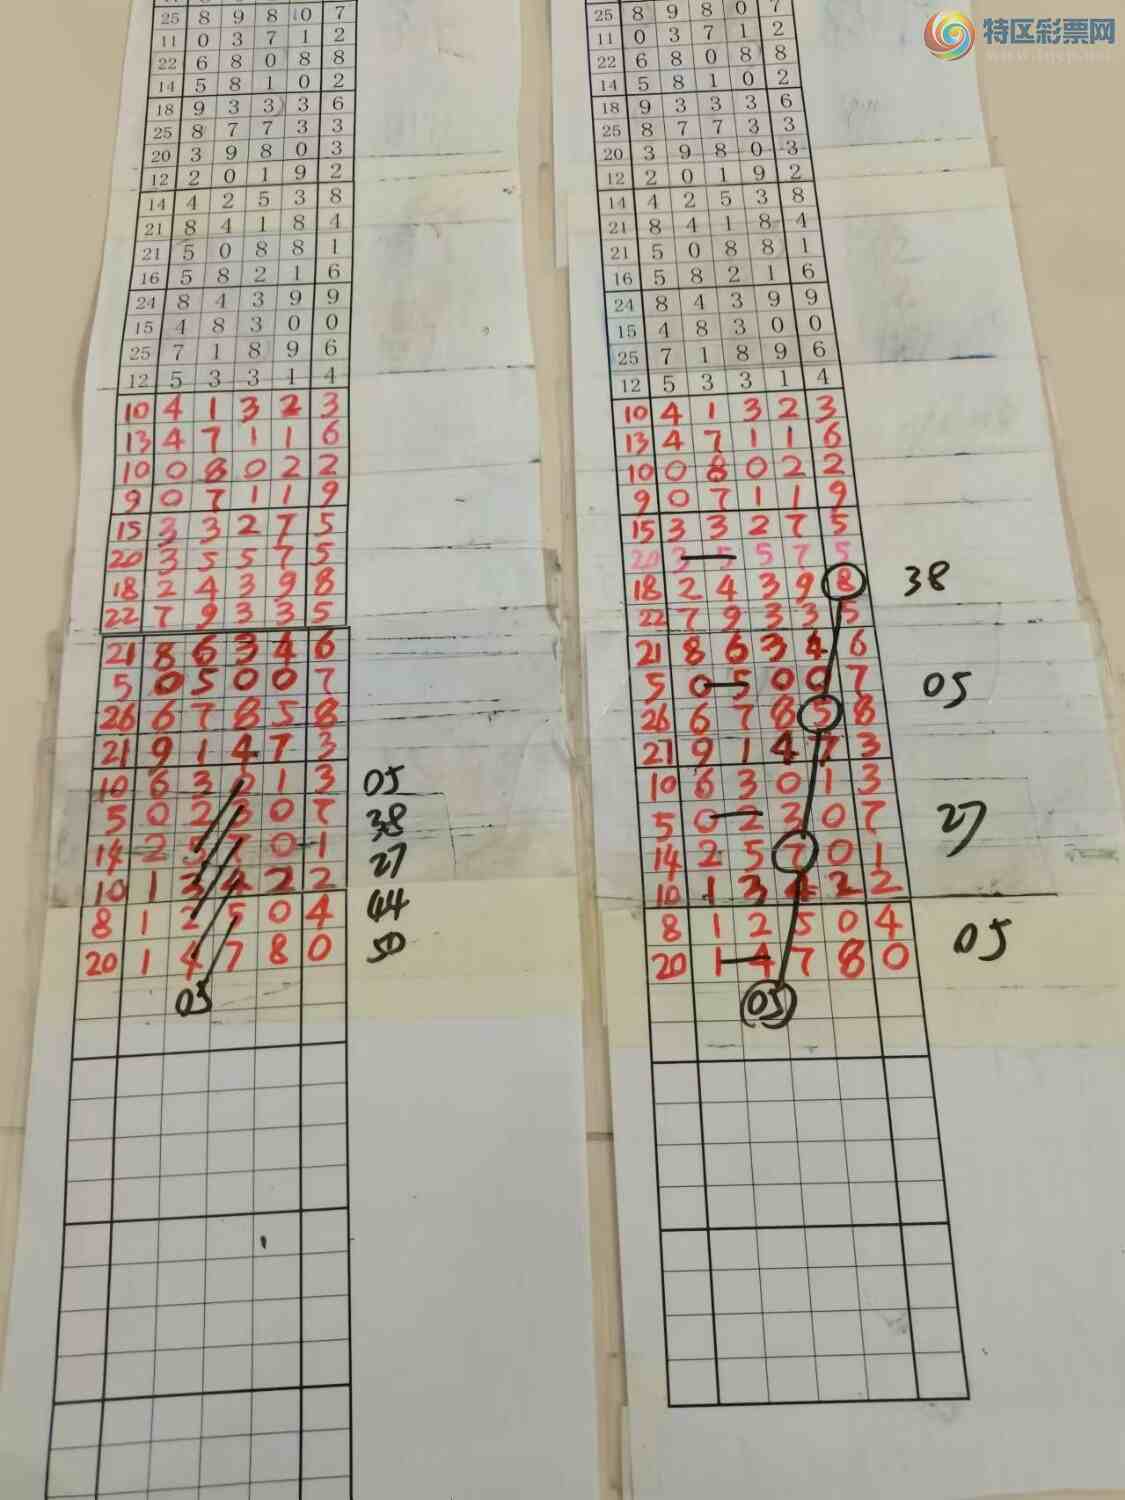 特区彩票网
25 8 9 8 0 7
11 0 3 7 1 2
22 6 8 0 8 8
14 5 8 1 0 2
18 9 3 3 3 6
25 8 7 7 3 3
20 3 9 8 0 3
12 2 0 1 9 2
14 4 2 5 3 8
21 8 4 1 8 4
21 5 0 8 8 1
16 5 8 2 1 6
24 8 4 3 9 9
15 4 8 3 0 0
25 7 1 8 9 6
12 5 3 3 1 4
10 4 1 3 2 3
13 4 7 1 1 6
10 0 8 0 2 2
9 0 7 1 1 9
15 3 3 2 7 5
20 3 5 5 7 5
18 2 4 3 9 8
22 7 9 3 3 5
21 8 6 3 4 6
5 0 5 0 0 7
26 6 7 8 5 8
21 9 1 4 7 3
10 6 3 0 1 3 05
5 0 2 3 0 7 38
14 2 5 7 0 1 27
10 1 3 4 2 2 44
8 1 2 5 0 4
20 1 4 7 8 0 50
05
25 8 9 8 0 7
11 0 3 7 1 2
22 6 8 0 8 8
14 5 8 1 0 2
18 9 3 3 3 6
25 8 7 7 3 3
20 3 9 8 0 3
12 2 0 1 9 2
14 4 2 5 3 8
21 8 4 1 8 4
21 5 0 8 8 1
16 5 8 2 1 6
24 8 4 3 9 9
15 4 8 3 0 0
25 7 1 8 9 6
12 5 3 3 1 4
10 4 1 3 2 3
13 4 7 1 1 6
10 0 8 0 2 2
9 0 7 1 1 9
15 3 3 2 7 5
20 3 5 5 7 5
18 2 4 3 9 8 38
22 7 9 3 3 5
21 8 6 3 4 6
5 0 5 0 0 7 05
26 6 7 8 5 8
21 9 1 4 7 3
10 6 3 0 1 3
5 0 2 3 0 7 27
14 2 5 7 0 1
10 1 3 4 2 2
8 1 2 5 0 4 05
20 1 4 7 8 0
05